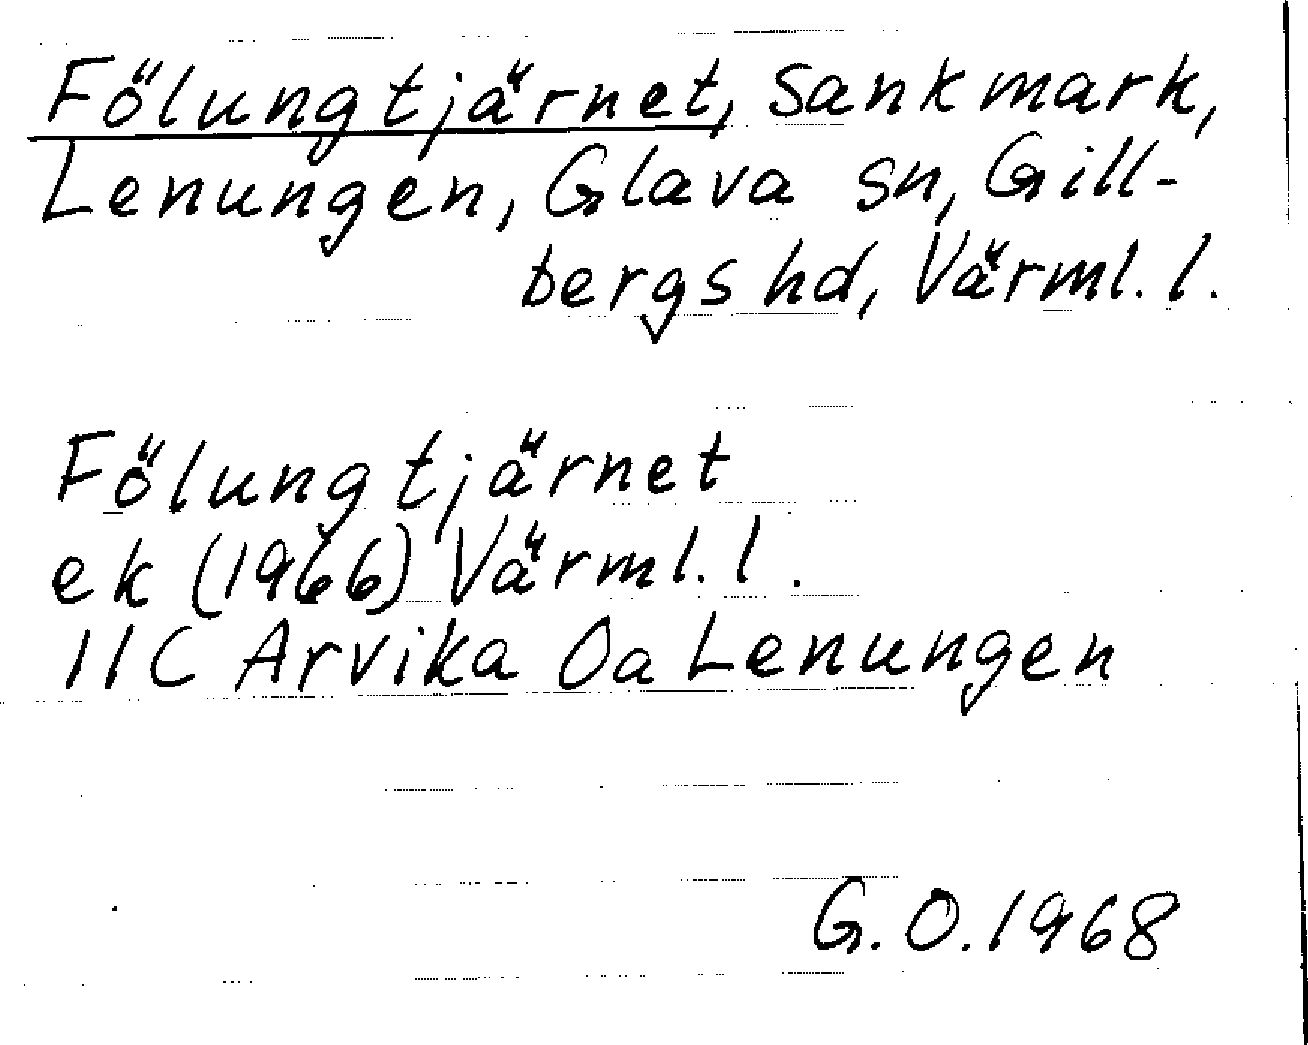 Fölungtjärnet, sankmark,
Lenungen, Glava sn, Gill-
bergs hd, Värml. l.
Fölungtjärnet
ek (1966) Värml. l.
11C Arvika 0a Lenungen
G.O.1968